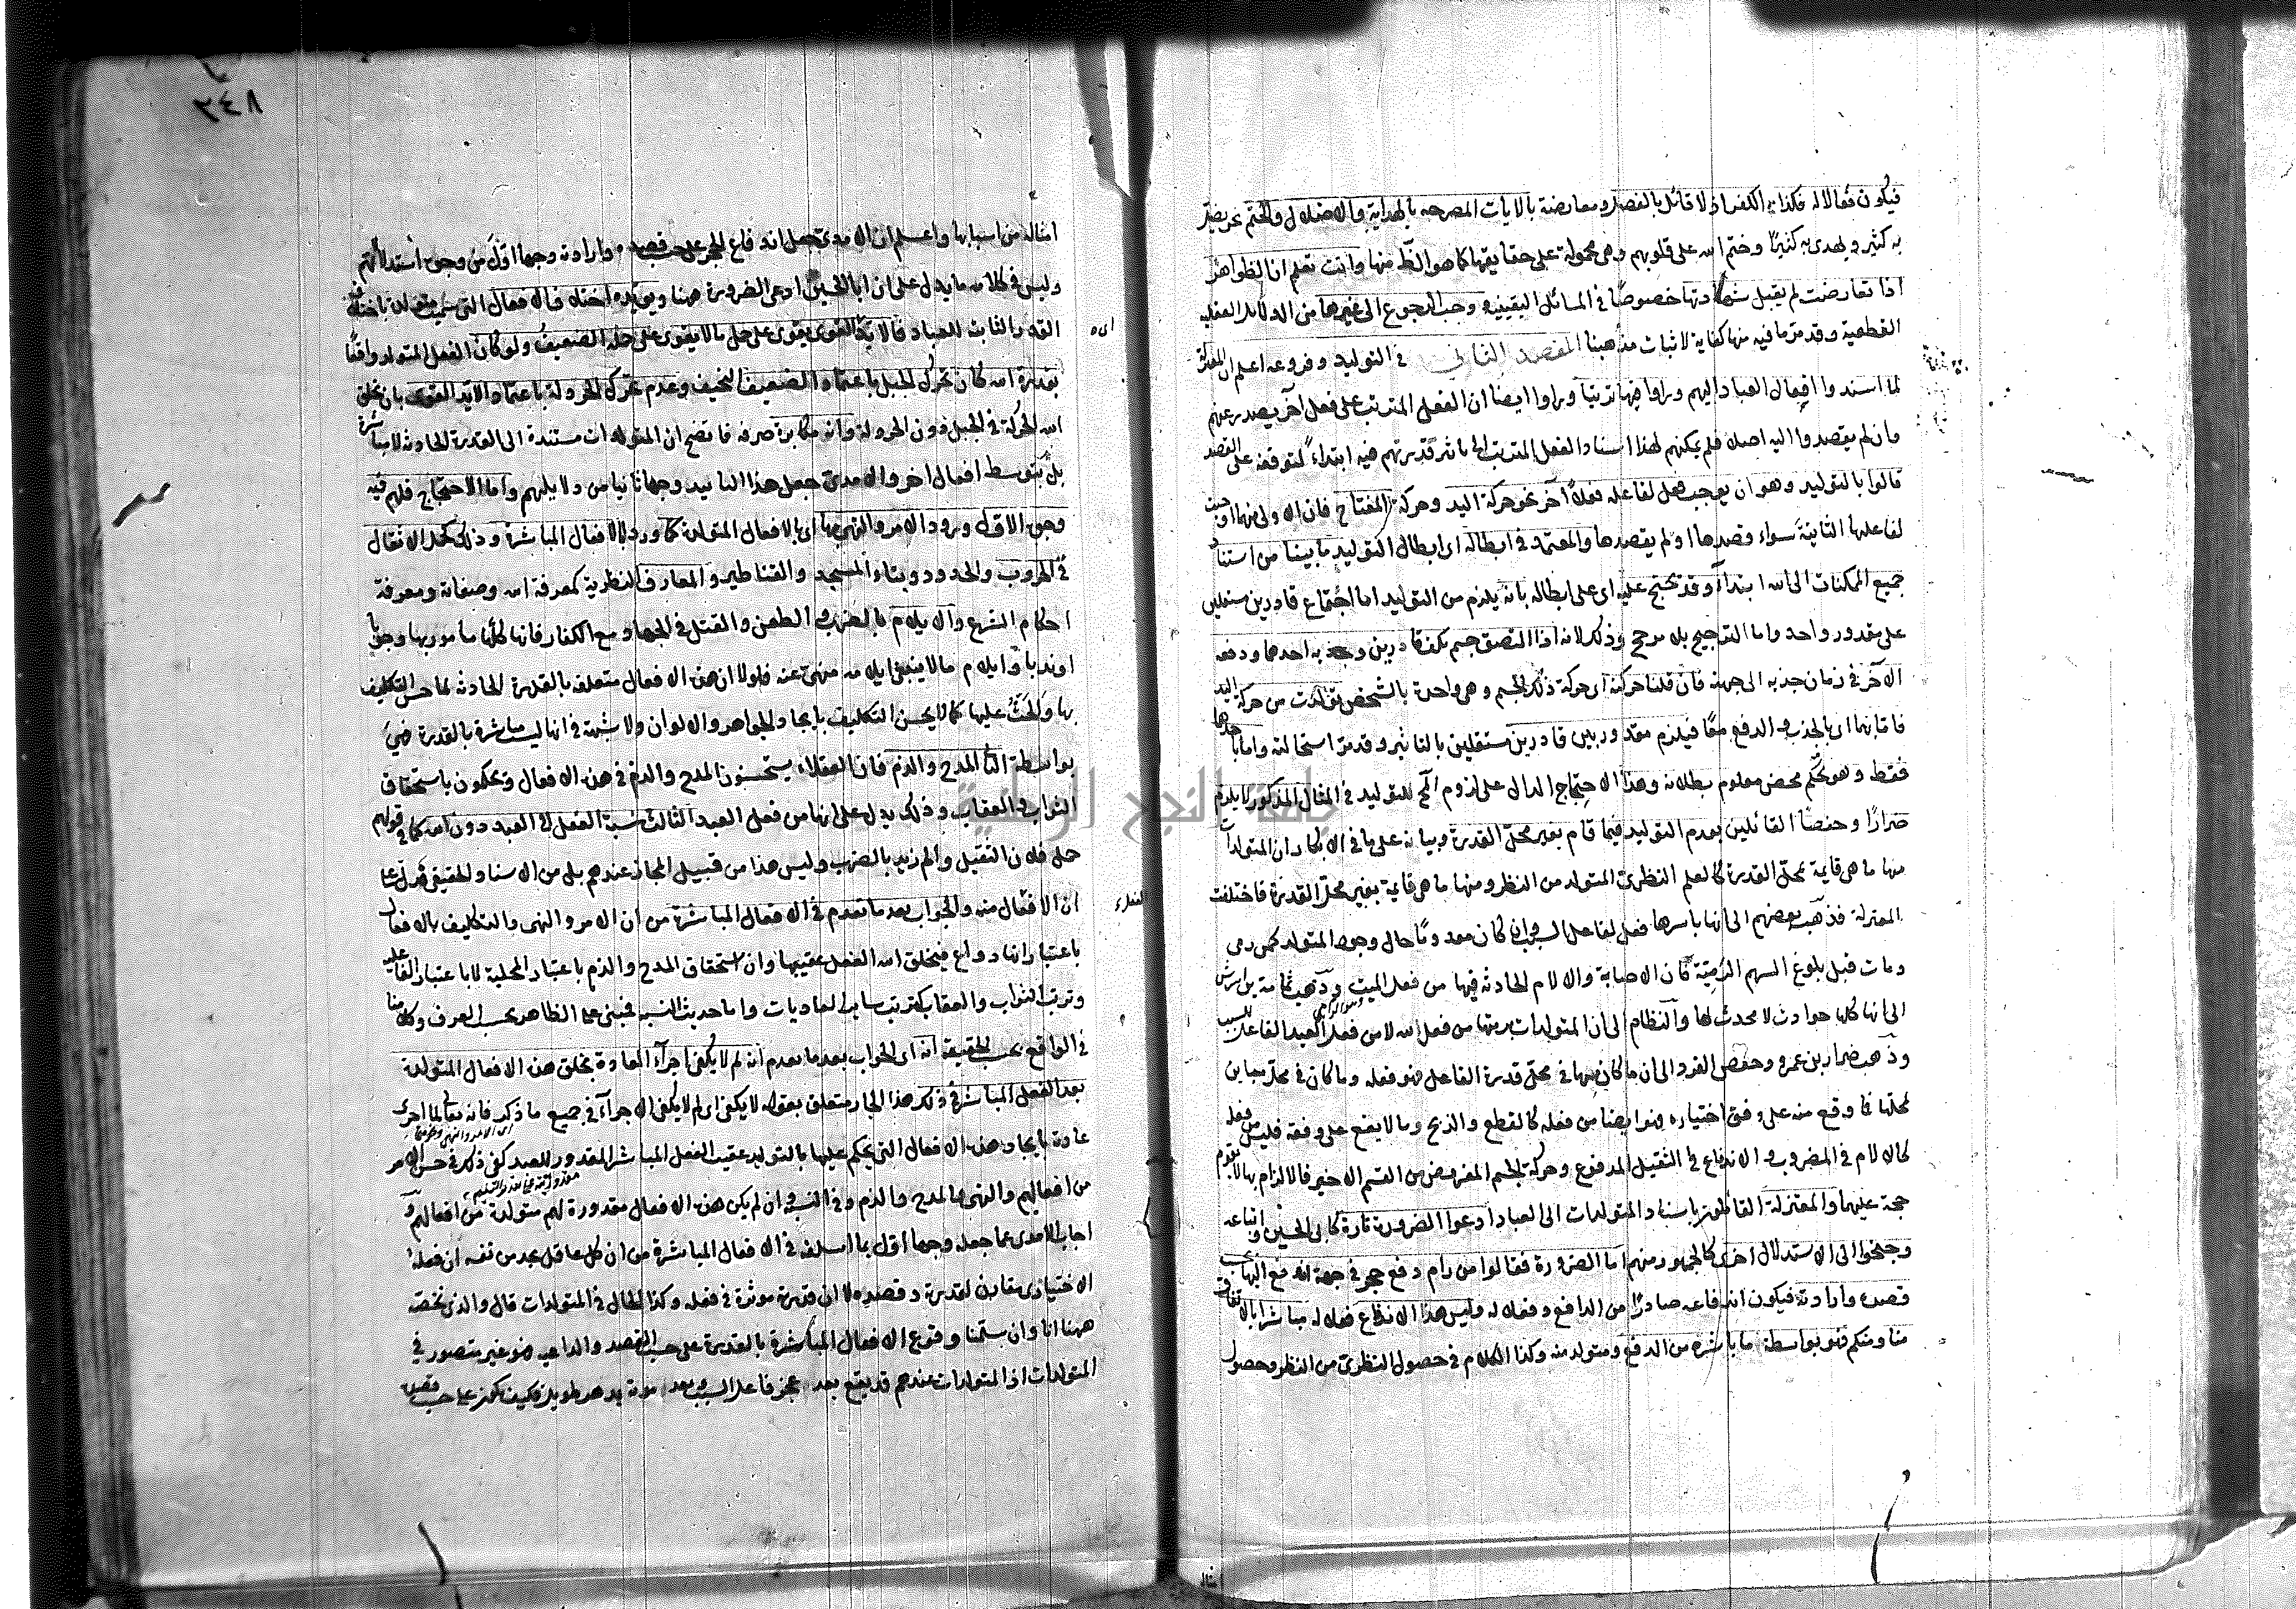 فيكون فعالا له فكذا الكفر اذ لا قائل بالفصل ومعارضة بالايات المصرحه بالهداية والاضلال والختم نحو يضل
به كثيرا ويهدى به كثيرا وختم الله على قلوبهم وهى محمولة على حقايقها كما هو الظ منها وانت تعلم ان الظواهر
اذا تعارضت لم يقبل شهادتها خصوصا فى المسائل اليقينيه ووجب الرجوع الى غيرها من الدلائل العقليه
القطعية وقد مر ما فيه منها كفاية لاثبات مذهبنا المقصد الثانى فى التوليد وفروعه اعلم ان المعتزلة
لما اسندوا افعال العباد اليهم وراوا فيها ترتبا وراوا ايضا ان الفعل المترتب على فعل آخر يصدر عنهم
وان لم يقصدوا اليه اصلا فلم يمكنهم لهذا اسناد الفعل المترتب الى تاثير قدرتهم فيه ابتداء لتوقفه على القصد
قالوا بالتوليد وهو ان يوجب فعل لفاعله فعلا آخر نحو حركة اليد وحركة المفتاح فان الاولى منهما اوجبت
لفاعلها الثانية سواء قصدها او لم يقصدها والمعتمد فى ابطاله اى ابطال التوليد ما بينا من استناد
جميع الممكنات الى الله ابتداء وقد يحتج عليه اى على ابطاله بانه يلزم من التوليد اما اجتماع قادرين مستقلين
على مقدور واحد واما الترجيح بلا مرجح وذلك لانه اذا التصق جسم بكف قادرين وجذبه احدهما ودفعه
الآخر فى زمان جذبه الى جهته فان قلنا حركته اى حركة ذلك الجسم وهى واحدة بالشخص تولدت من حركة اليد
فاما بهما اى بالجذب والدفع معا فيلزم مقدور بين قادرين مستقلين بالتاثير وقد مر استحالته واما باحدهما
فقط وهو تحكم محض معلوم بطلانه وهذا الاحتجاج الدال على لزوم المح للتوليد فى المثال المذكور لا يلزم
ضرارا وحفصا القائلين بعدم التوليد فيما قام بغير محل القدرة وبيانه على ما فى الابكار ان المتولدات
منها ما هى قايمة بمحل القدرة كالعلم النظرى المتولد من النظر ومنها ما هى قايمة بغير محل القدرة فاختلفت
المعتزلة فذهب بعضهم الى انها باسرها فعل لفاعل السبب وان كان معدوما حال وجود المتولد كمن رمى
ومات قبل بلوغ السهم الرمية فان الاصابة والالام الحادثه فيها من فعل الميت وذهب ثمامة بن اشرس
الى انها كلها حوادث لا محدث لها والنظام الى ان المتولدات برمتها من فعل الله لا من فعل العبد الفاعل للسبب
وذهب ضرار بن عمرو وحفص الفرد الى ان ما كان منها فى محل قدرة الفاعل فهو فعله وما كان فى محل مباين
لمحلها فما وقع منه على وفق اختياره فهو ايضا من فعله كالقطع والذبح وما لا يقع على وفقه فليس من فعله
كالالام فى المضروب والاندفاع فى الثقيل المدفوع وحركة الجسم المفروض من القسم الاخير فالالزام بها لا تقوم
حجة عليهما والمعتزلة القائلون باسناد المتولدات الى العباد ادعوا الضرورة تارة كابى الحسين واتباعه
وجنحوا الى الاستدلال اخرى كالجمهور منهم اما الضرورة فقالوا من رام دفع حجر فى جهة اندفع اليها بحسب
قصده وارادته فيكون اندفاعه صادرا من الدافع وفعله له وليس هذا الاندفاع فعلا له مباشرا بالاتفاق
منا ومنكم فهو بواسطة ما باشره من الدفع ومتولد منه وكذا الكلام فى حصول النظرى من النظر وحصول
امثاله
٢٤٨
امثاله من اسبابها واعلم ان الامدى جعل اندفاع الحجر على حسب قصده وارادته وجها اول من وجوه استدلالهم
وليس فى كلامه ما يدل على ان ابا الحسين ادعى الضرورة ههنا ويؤيده اختلاف الافعال التى سميت متولدة باختلاف
القدر الثابت للعباد فالايد القوى يقوى على حمل ما لا يقوى على حمله الضعيف ولو كان الفعل المتولد واقعا
بقدرة الله كان تحرك الجبل باعتماد الضعيف النحيف وعدم تحرك الخردلة باعتماد الايد القوى بان يخلق
الله الحركة فى الجبل دون الخردلة وانه مكابرة صرفه فاتضح ان المتولدات مستندة الى القدرة الحادثه لا مباشرة
بل بتوسط افعال اخر والامدى جعل هذا التاييد وجها ثانيا من دلايلهم واما الاحتجاج فلهم فيه
وجوه الاول ورود الامر والنهى بها اى بالافعال المتولدة كما ورد بالافعال المباشرة وذلك كحمل الاثقال
فى الحروب والحدود وبناء المسجد والقناطير والمعارف النظرية كمعرفة الله وصفاته ومعرفة
احكام الشرع والايلام بالضرب والطعن والقتل فى الجهاد مع الكفار فانها كلها مامور بها وجوبا
او ندبا وايلام ما لا ينبغى ايلامه منهى عنه فلولا ان هذه الافعال متعلقه بالقدرة الحادثه لما حسن التكليف
بها والحث عليها كما لا يحسن التكليف بايجاد الجواهر والالوان ولا شبهة فى انها ليست مباشرة بالقدرة فهى
بواسطة الثانى المدح والذم فان العقلاء يستحسنون المدح والذم فى هذه الافعال ويحكمون باستحقاق
الثواب والعقاب وذلك يدل على انها من فعل العبد الثالث نسبة الفعل الى العبد دون الله كما فى قولهم
حمل فلان الثقيل والم زيد بالضرب وليس هذا من قبيل المجاز عندهم بل من الاسناد الحقيقى فدل على
ان الافعال منه والجواب بعد ما تقدم فى الافعال المباشرة من ان الامر والنهى والتكليف بالافعال
باعتبار انها دواع فيخلق الله الفعل عقيبها وان استحقاق المدح والذم باعتبار المحلية لا باعتبار الفاعليه
وترتب الثواب والعقاب كترتب ساير العاديات واما حديث النسبه فمبنى على الظاهر بحسب العرف وكلامنا
فى الواقع بحسب الحقيقه انه اى الجواب بعد ما تقدم انه لم لا يكفى اجراء العادة بخلق هذه الافعال المتولدة
بعد الفعل المباشر فى ذلك هذا الجار متعلق بقوله لا يكفى اى لم لا يكفى الاجراء فى جميع ما ذكر فانه تعالى لما اجرى
عادته بايجاد هذه الافعال التى يحكم عليها بالتوليد عقيب الفعل المباشر المقدور للعبد كفى ذلك فى حسن الامر
من افعالهم والنهى والمدح والذم وفى النسبه وان لم يكن هذه الافعال مقدورة لهم متولدة من افعالهم
اجاب الامدى عما جعله وجها اول بما اسلفه فى الافعال المباشرة من ان كل عاقل يجد من نفسه ان فعله
الاختيارى مقارن لقدرته وقصده لا ان قدرته مؤثرة فى فعله وكذا الحال فى المتولدات قال والذى نخصه
ههنا انا وان سلمنا وقوع الافعال المباشرة بالقدرة على حسب القصد والداعيه فهو غير متصور فى
المتولدات اذ المتولدات عندهم قد يقع بعد عجز فاعل السبب وبعد موته بدهر طويل فكيف يكون على حسب قصده